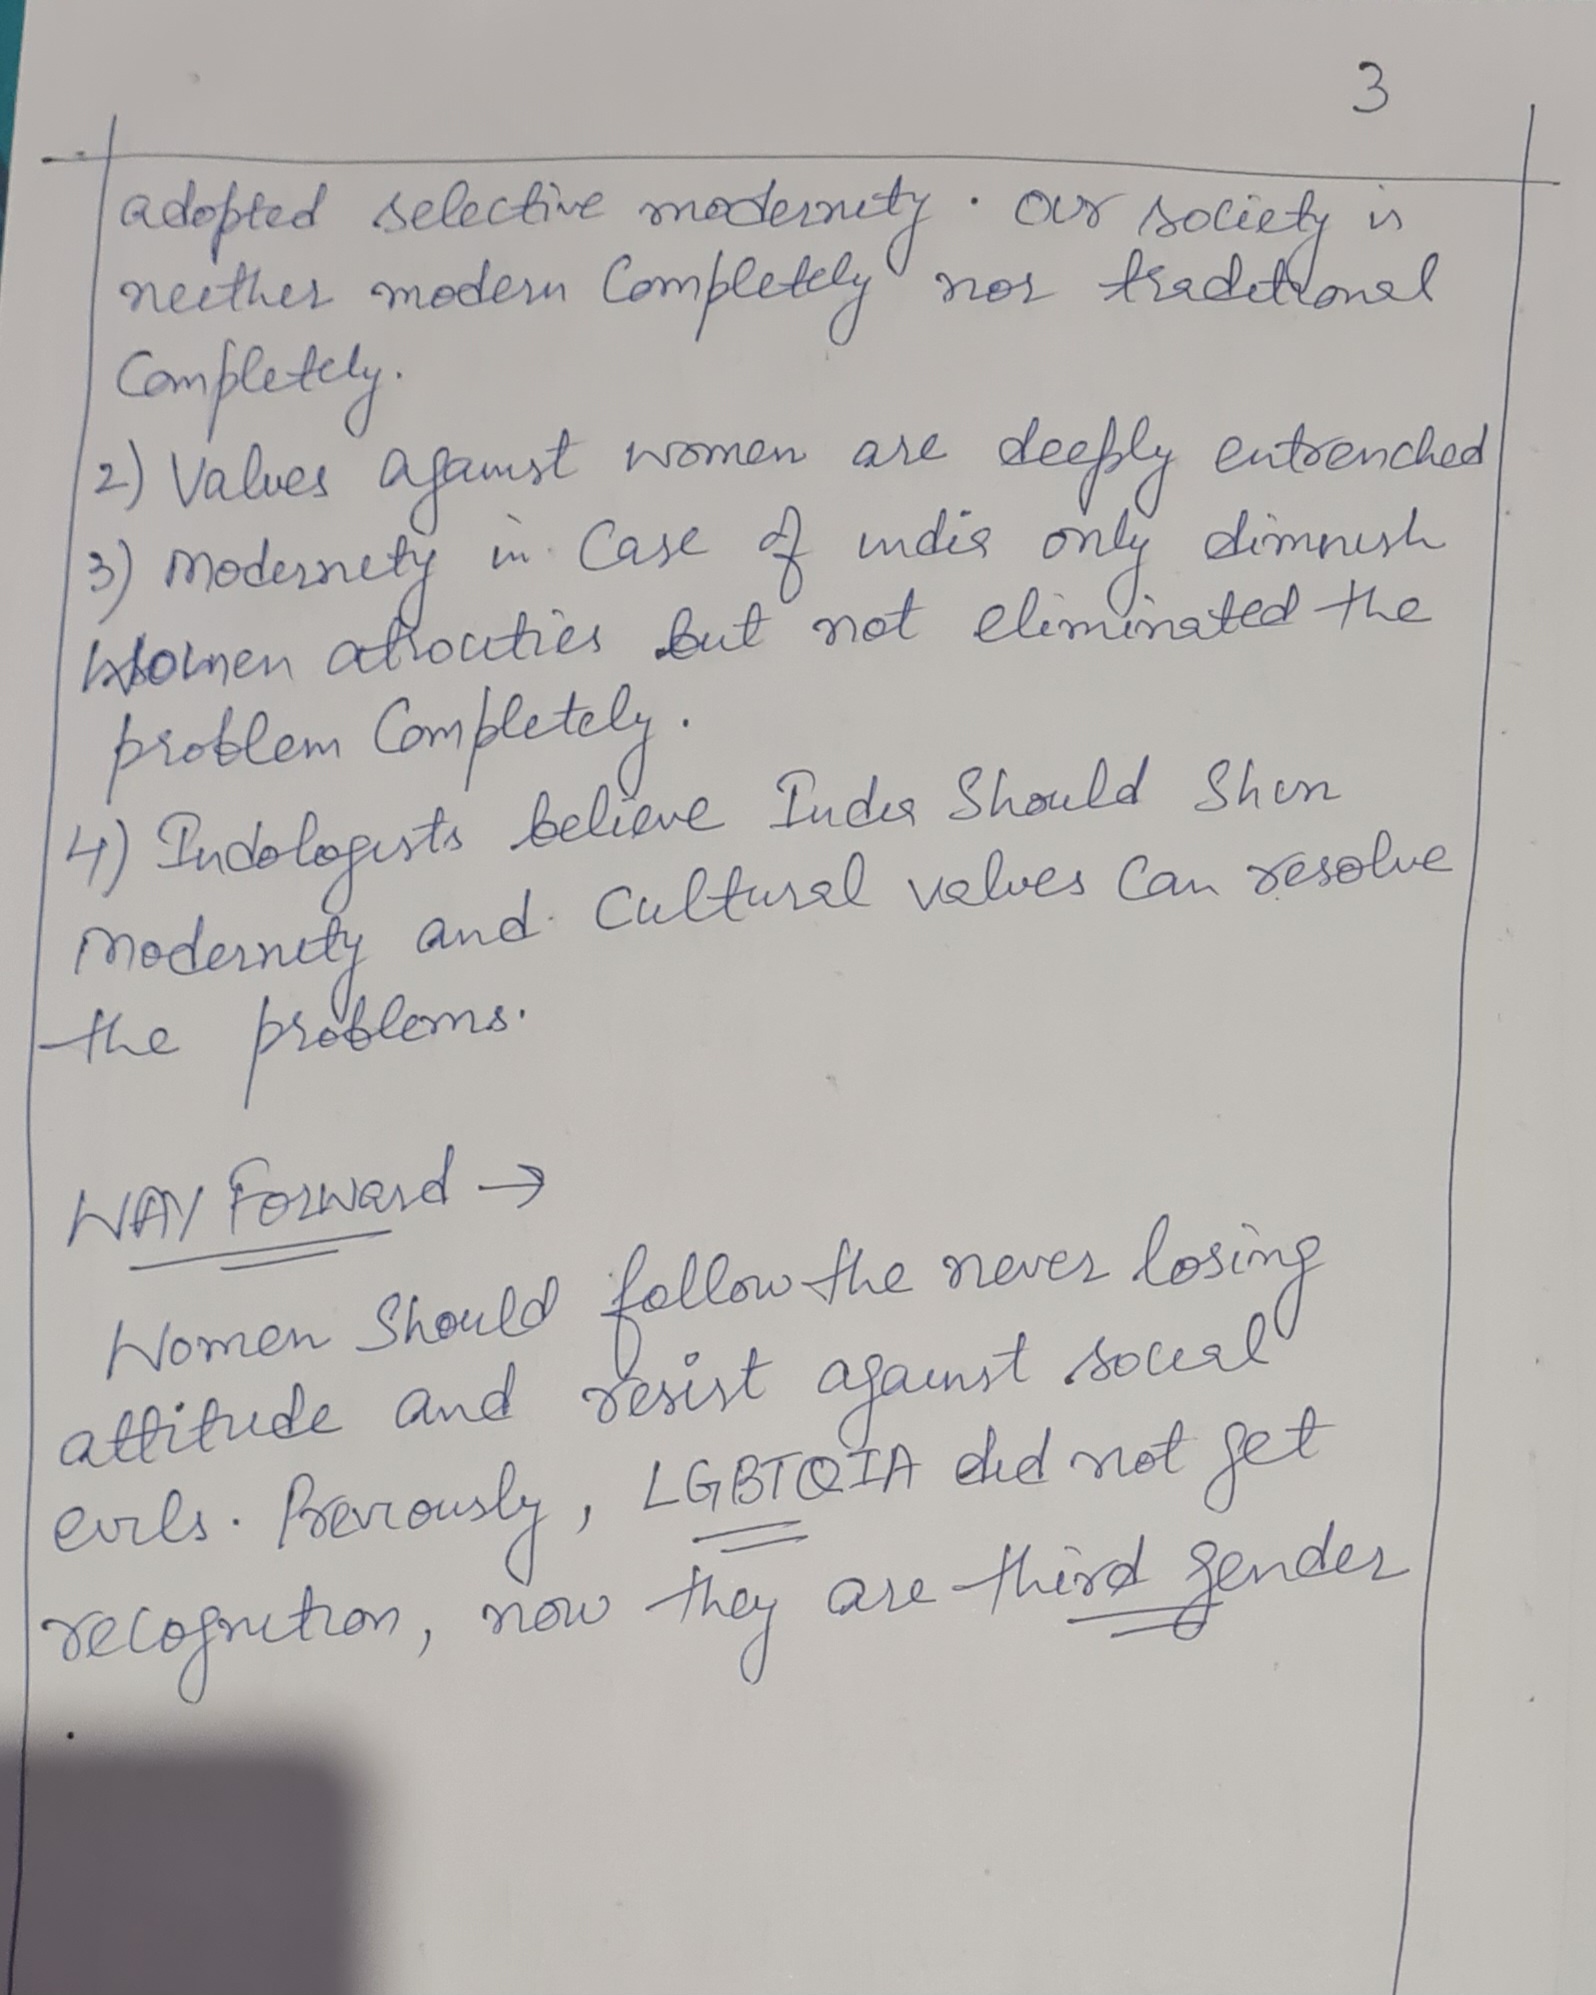 3
adopted selective modernity. Our society is
neither modern completely nor traditional
completely.
2) Values against women are deeply entrenched
3) Modernity in case of india only diminish
Women atrocities but not eliminated the
problem completely.
4) Indologists believe India should shun
modernity and cultural values can resolve
the problems.
WAY Forward →
Women should follow the never losing
attitude and resist against social
evils. Previously, LGBTQIA did not get
recognition, now they are third gender